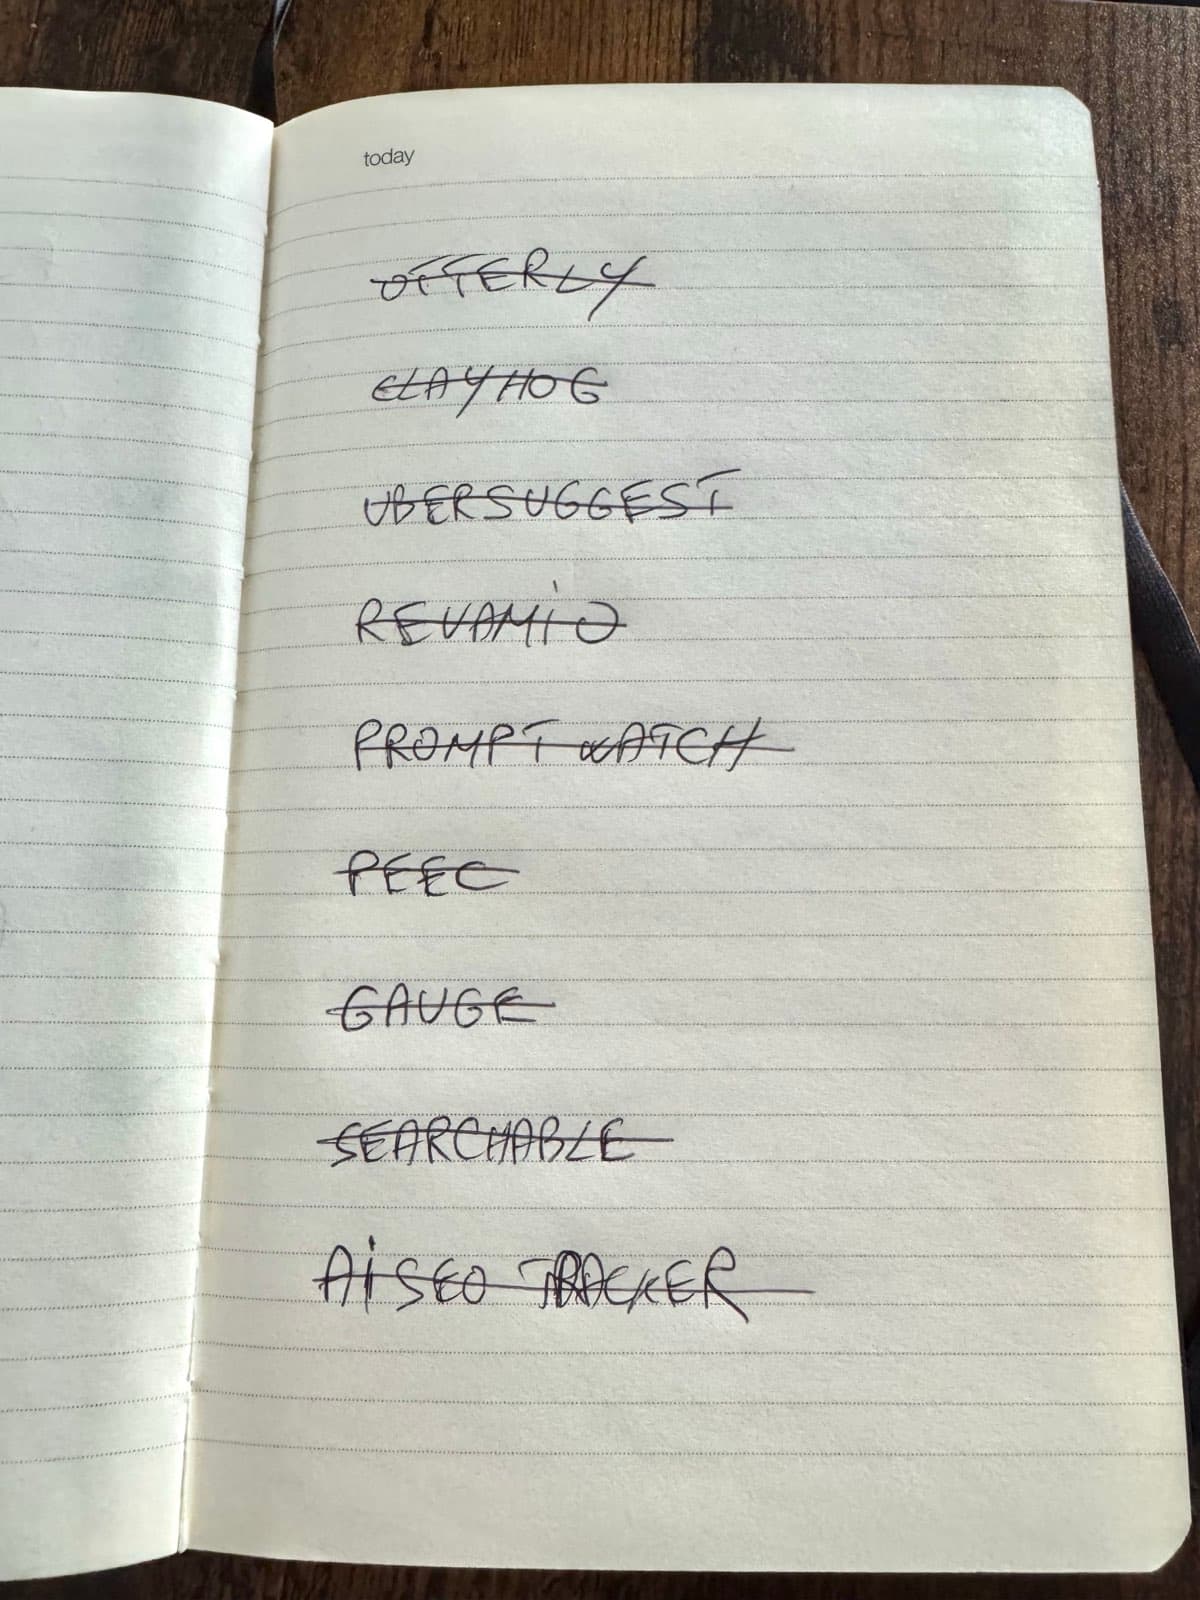 today
OTTERLY
CLAYHOG
UBERSUGGEST
REVAMiO
PROMPT WATCH
PEEC
GAUGE
SEARCHABLE
AiSEO TRACKER